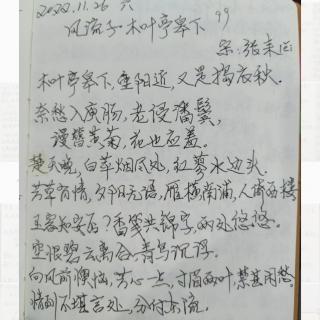 2022.11.26 六
风流子·木叶亭皋下 99
宋:张耒
木叶亭皋下,重阳近,又是捣衣秋.
奈愁入庾肠,老侵潘鬓,
谩簪黄菊,花也应羞.
楚天晚,白苹烟尽处,红蓼水边头.
芳草有情,夕阳无语,雁横南浦,人倚西楼
玉容知安否?香笺共锦字,两处悠悠.
空恨碧云离合,青鸟沉浮.
向风前懊恼,芳心一点,寸眉两叶,禁甚闲愁
情到不堪言处,分付东流.